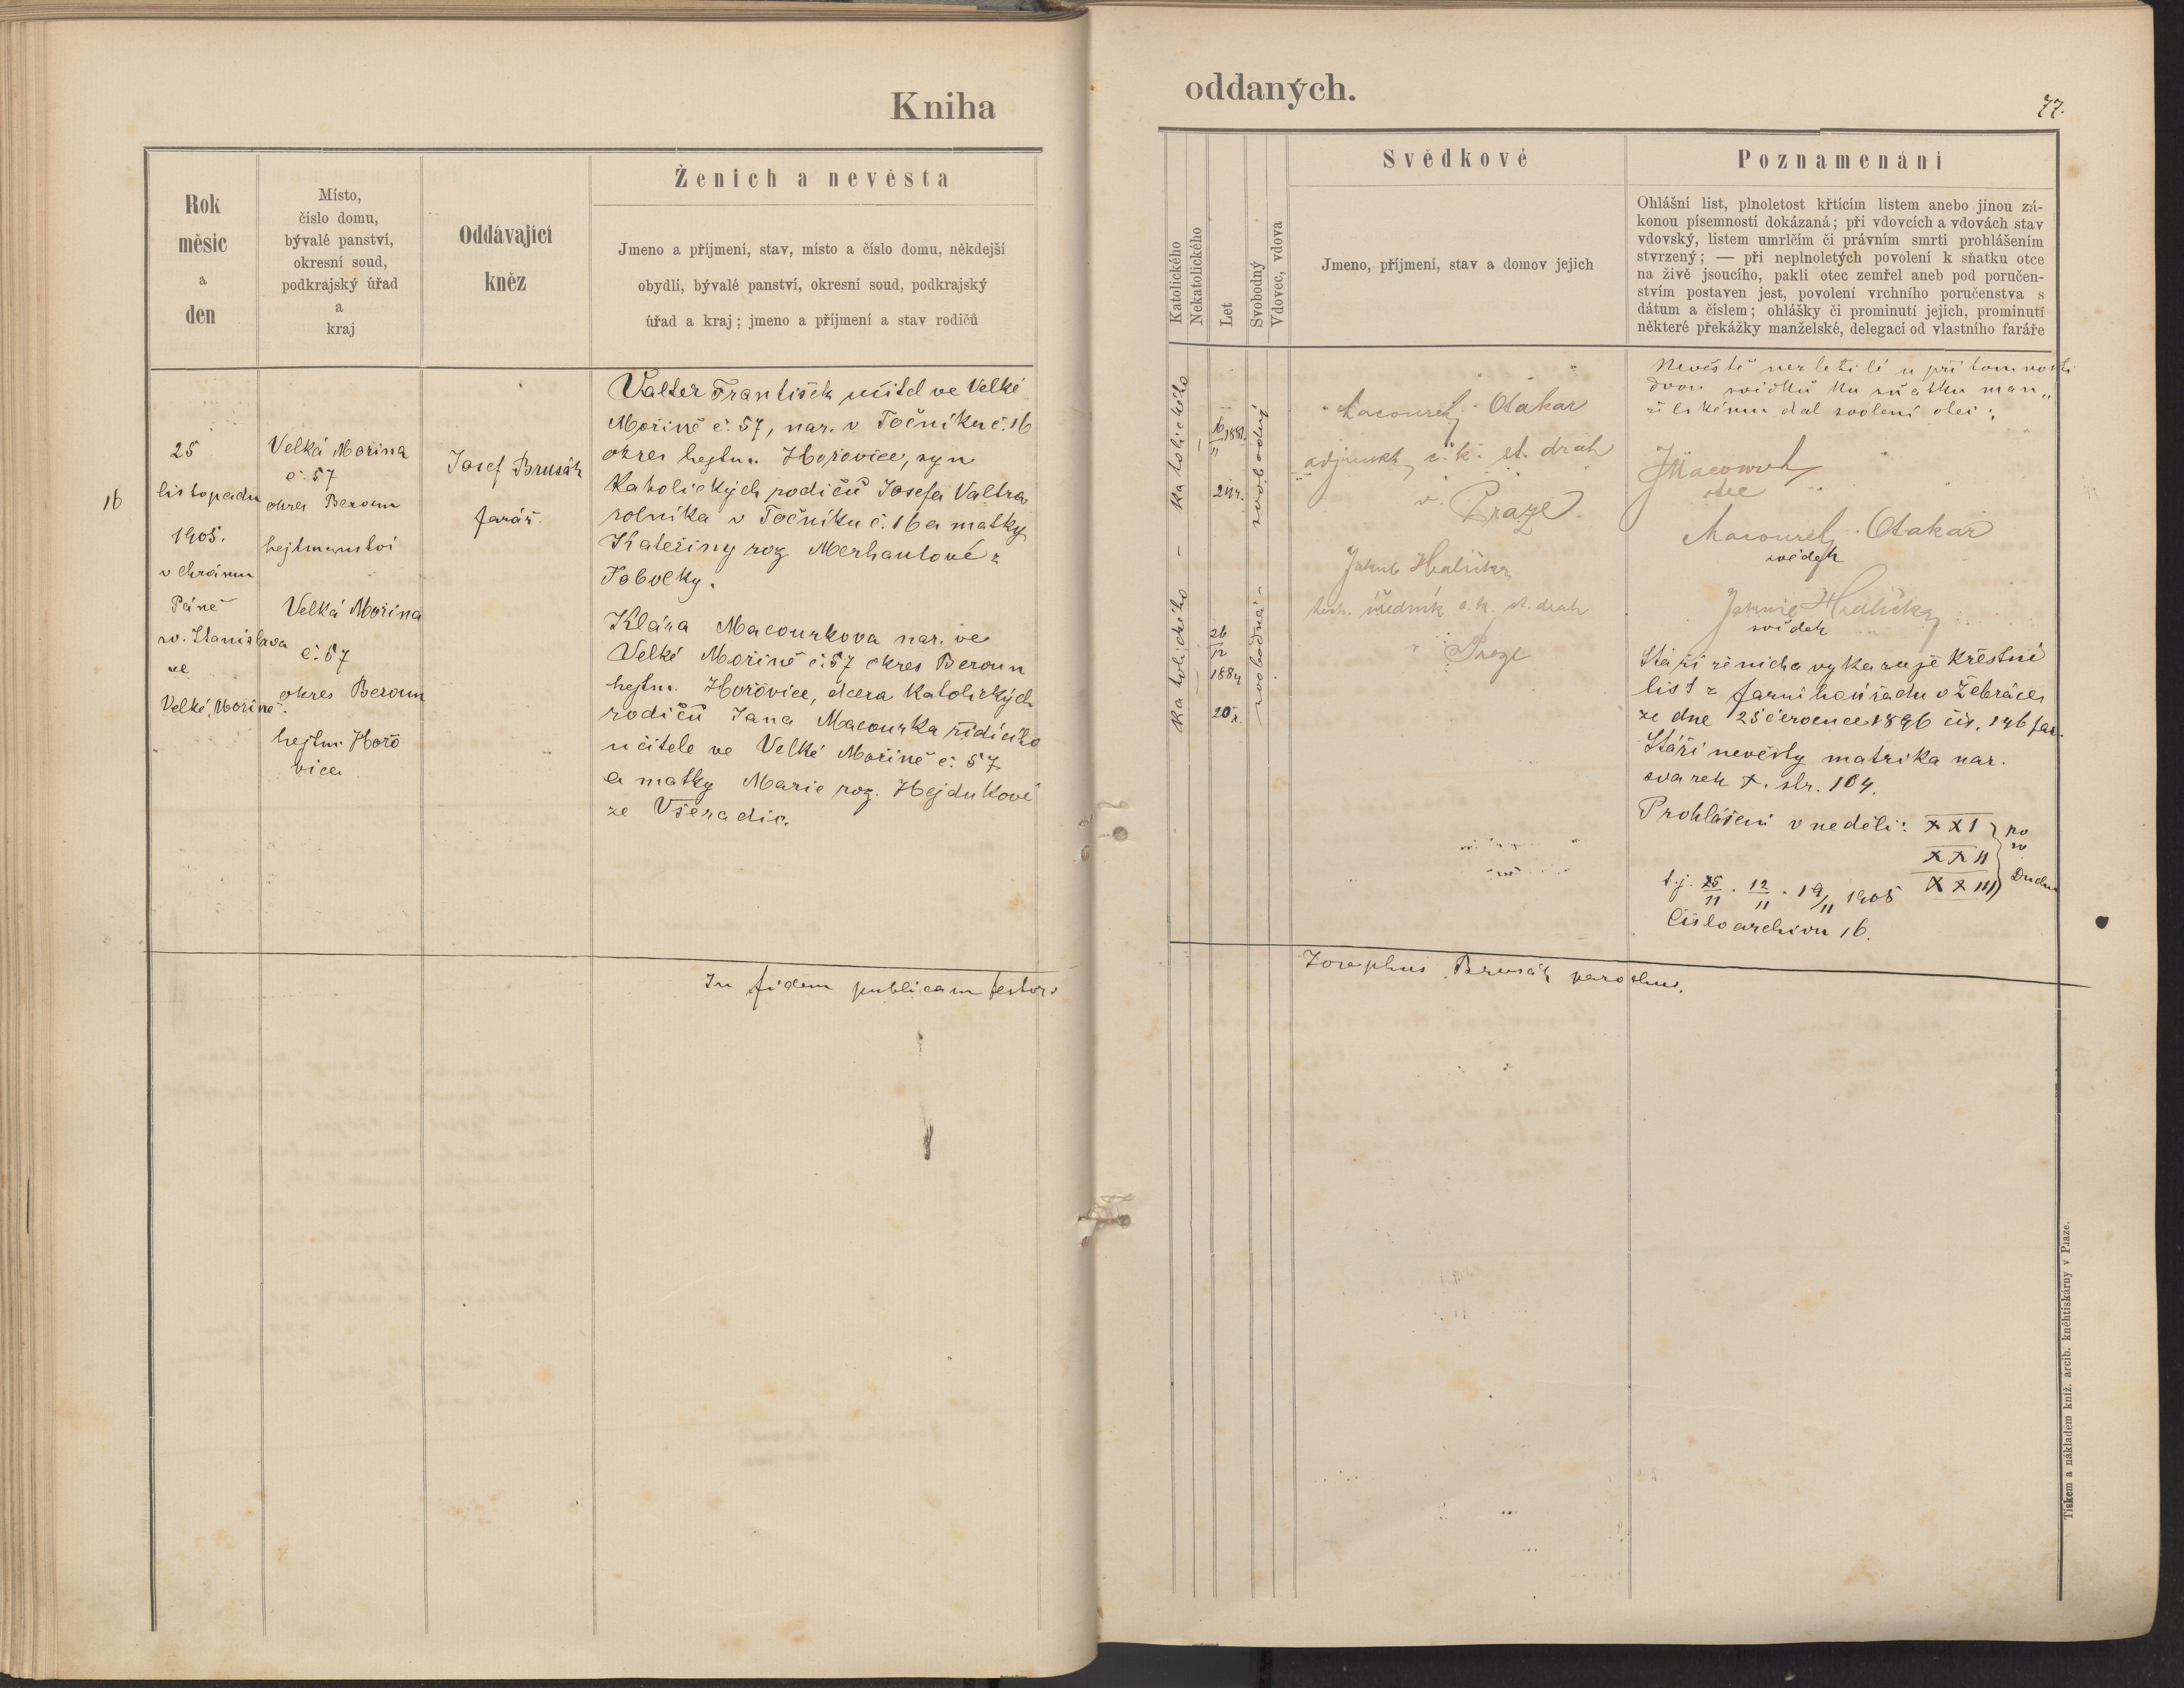 Kniha
oddaných.
77.
Rok
měsíc
a
den
Místo,
číslo domu,
bývalé panství,
okresní soud,
podkrajský úřad
a
kraj
Oddávající
kněz
Ženich a nevěsta
Jmeno a příjmení, stav, místo a číslo domu, někdejší
obydlí, bývalé panství, okresní soud, podkrajský
úřad a kraj; jmeno a příjmení a stav rodičů
Katolického
Nekatolického
Let
Svobodný
Vdovec, vdova
Svědkové
Jmeno, příjmení, stav a domov jejich
Poznamenání
Ohlášní list, plnoletost křtícím listem anebo jinou zá-
konou písemností dokázaná; při vdovcích a vdovách stav
vdovský, listem umrlčím či právním smrti prohlášením
stvrzený; — při neplnoletých povolení k sňatku otce
na živě jsoucího, pakli otec zemřel aneb pod poručen-
stvím postaven jest, povolení vrchního poručenstva s
dátum a číslem; ohlášky či prominutí jejich, prominutí
některé překážky manželské, delegací od vlastního faráře
16
25
listopadu
1905.
v chrámu
Páně
sv. Stanislava
ve
Velké Mořině.
Velká Mořina
č. 57
okres Beroun
hejtmanství
Velká Mořina
č. 57
okres Beroun
hejtm. Hořo
vice
Josef Brusák
farář.
Valter František učitel ve Velké
Mořině č. 57, nar. v Točníku č. 16
okres hejtm. Hořovice, syn
Katolických rodičů Josefa Valtra
rolníka v Točníku č. 16 a matky
Kateřiny roz. Merhautové z
Tobolky.
Klára Macourkova nar. ve
Velké Mořině č. 57 okres Beroun
hejtm. Hořovice, dcera Katolických
rodičů Jana Macourka řídícího
učitele ve Velké Mořině č. 57
a matky Marie roz. Hejdukové
ze Všeradic.
katolického – katolického
16/11 1881.
24 r.
26/12
1884
20 r.
svobodný
svobodná –
Macourek Otakar
adjunkt c. k. st. drah
v Praze.
Jakub Hulička
úředník c. k. st. drah
Praze
Nevěstě nezletilé u přítomnosti
dvou svědků ku sňatku man„
želskému dal svolení otec:
JMacourek
otec
Macourek Otakar
svědek
Hulička
svědek
Stáří ženicha vykazuje křestní
list z farního úřadu v Žebráce
ze dne 25 července 1896 čís. 196 far.
Stáří nevěsty matrika nar.
svazek X. str. 104.
Prohlášení v neděli: XXI
XXII
XXIII
po
sv.
Duchu
t. j. 5/11 . 12/11 . 19/11 1905
Číslo archivu 16.
In fidem publicam testor:
Josephus Brusák parochus.
Tiskem a nákladem kníž. arcib. kněhtiskárny v Praze.